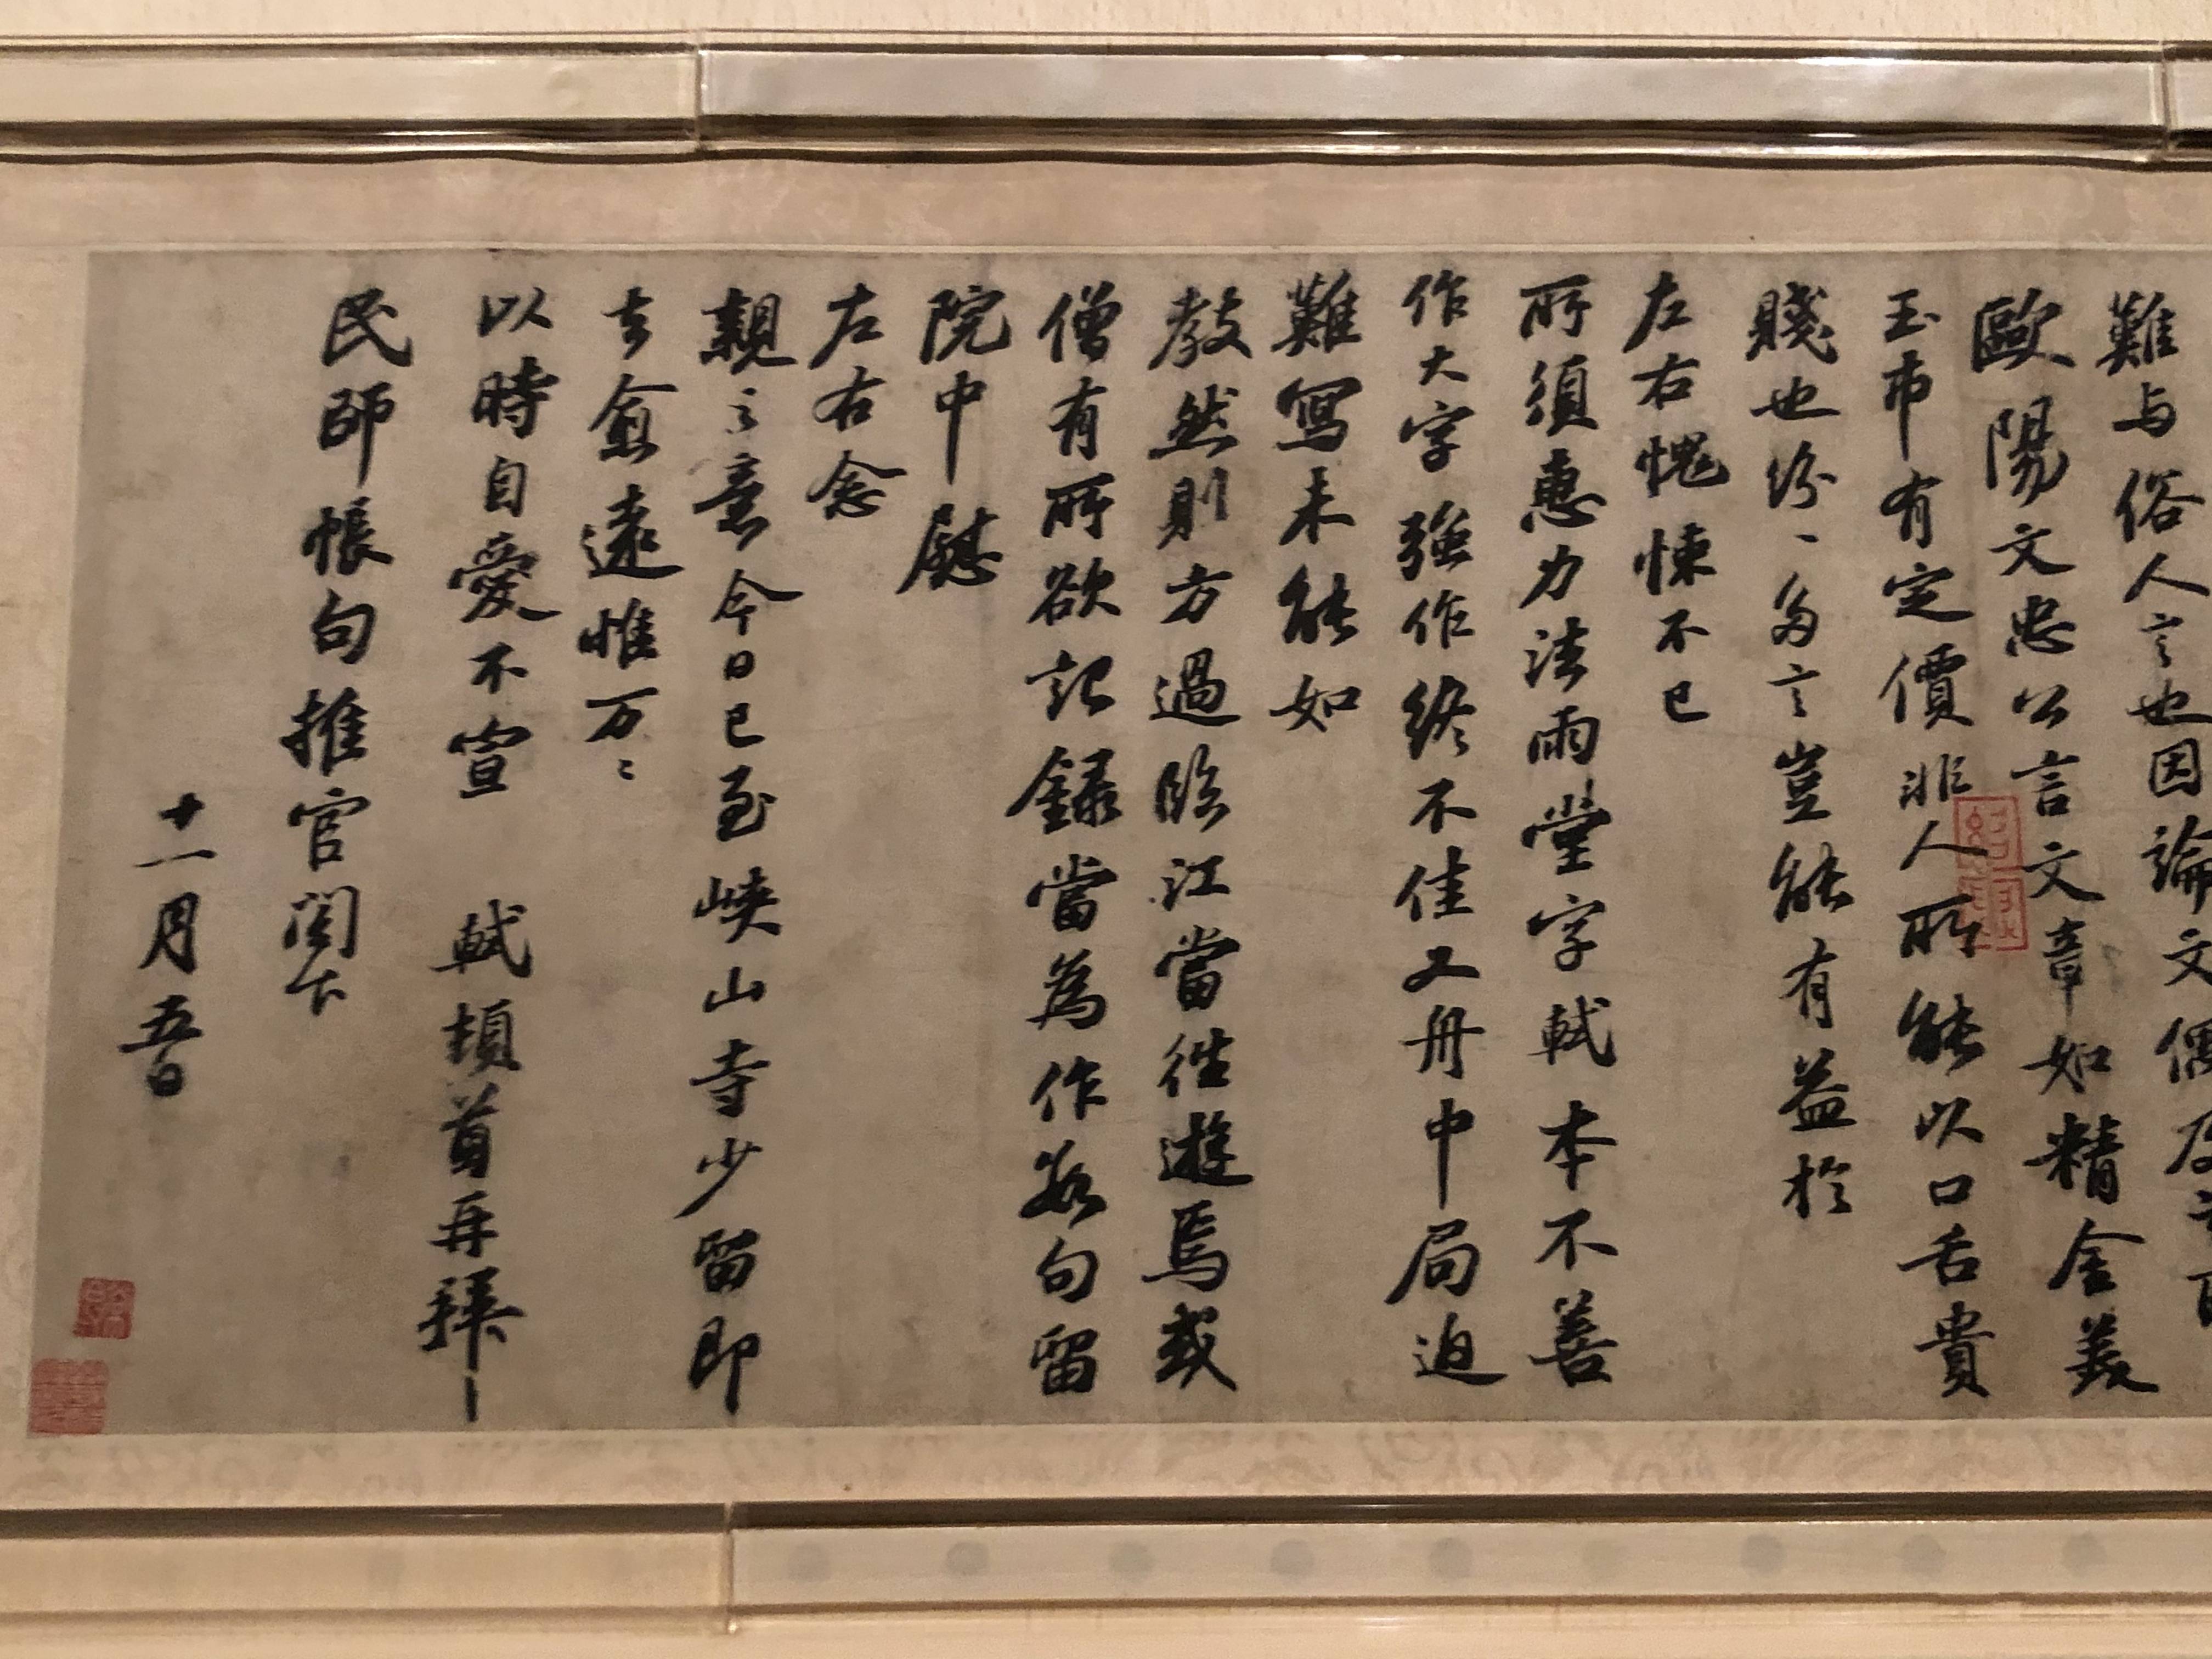 難与俗人言也因論文偶及
歐陽文忠公言文章如精金美
玉市有定價非人所能以口舌貴
賤也紛〻多言豈能有益於
左右愧悚不已
所須惠力法雨堂字軾本不善
作大字強作終不佳又舟中局迫
難寫未能如
教然則方過臨江當往遊焉或
僧有所欲記錄當為作數句留
院中慰
左右念
親之意今日已至峽山寺少留即
去愈遠惟万〻
以時自愛不宣 軾頓首再拜
民師帳句推官閣下
十一月五日